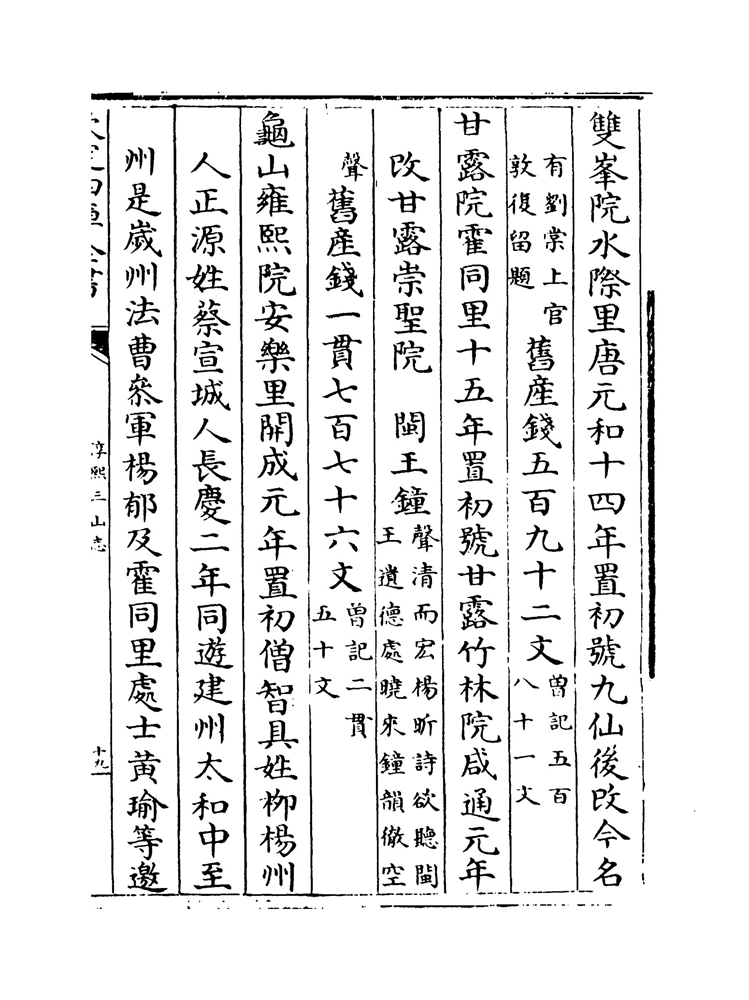 雙峯院水際里唐元和十四年置初號九仙後改今名
有劉棠上官敦復留題舊産錢五百九十二文曽記五百八十一文
甘露院霍同里十五年置初號甘露竹林院咸通元年
改甘露崇聖院　閩王鐘聲清而宏楊昕詩欲聽閩王遺德處曉來鐘韻徹空
聲舊産錢一貫七百七十六文曽記二貫五十文
龜山雍熙院安樂里開成元年置初僧智具姓栁楊州
人正源姓蔡宣城人長慶二年同遊建州太和中至
州是嵗州法曹叅軍楊郁及霍同里處士黄瑜等邀
欽定四庫全書
淳熙三山志
十九